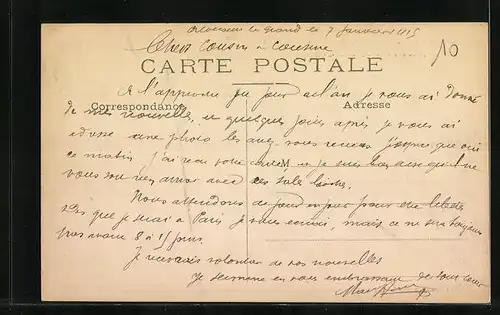 le grand le 7 Janvier 1915
Chers cousin & cousine
10
CARTE POSTALE
A l'approche du jour de l'an je vous ai donné
Correspondance
Adresse
de mes nouvelles, et quelques jours après je vous ai
une photo les avez vous reçues j'espère que oui
ce matin j'ai reçu votre carte et je suis
vous avec ces sales boches.
Nous attendons de jour en jour pour être
dès que je serai à Paris je vous écrirai, mais ce ne sera toujours
pas avant 8 à 15 jours.
Je recevrais volontier de vos nouvelles
Je termine en vous embrassant de tout cœur